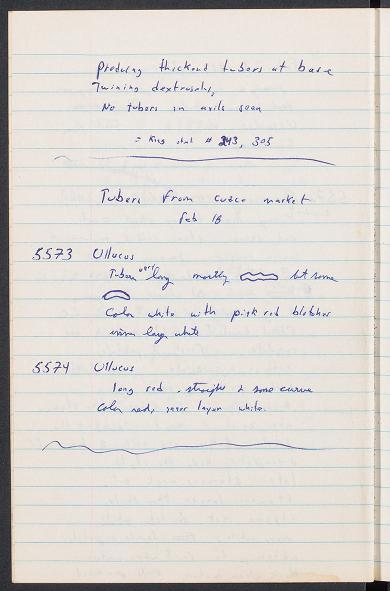 Producing thickend tubers at base
Twining dextrosely,
No tubers in axils seen
= King # 243, 305
Tubers from Cusco market
Feb 18
5573 Ullucus
Tubers very long mostly but some
Color white with pink red blotches
inner layer white
5574 Ullucus
long red, straight & some curve
Color red, inner layer white.